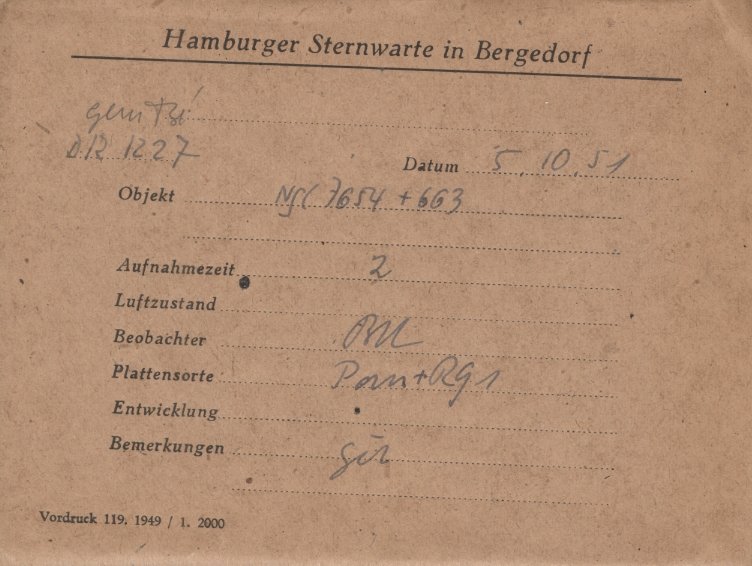 Hamburger Sternwarte in Bergedorf
DR 1227
Datum 5. 10. 51
Objekt NGC 7654 + 663
Aufnahmezeit 2
Luftzustand
Beobachter
Plattensorte Pan + RG1
Entwicklung
Bemerkungen
Vordruck 119. 1949 / 1. 2000